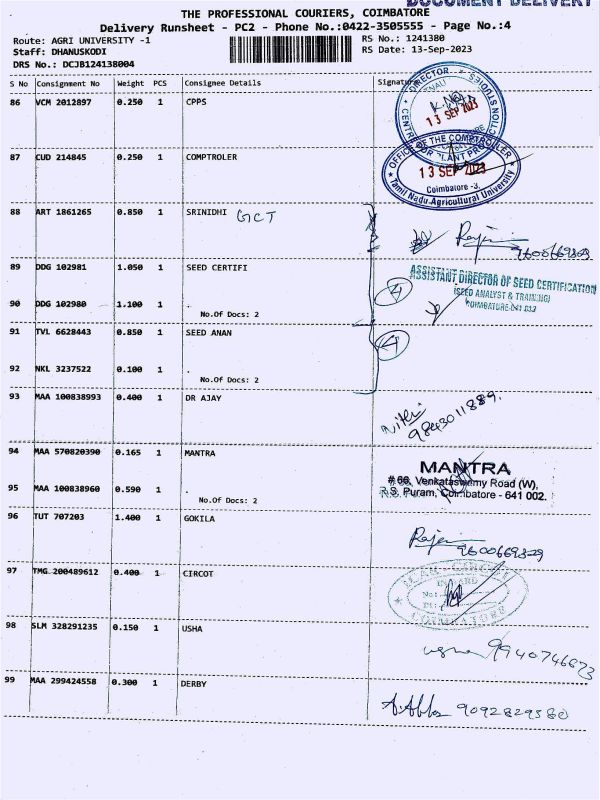 DOCUMENT DELIVERY
THE PROFESSIONAL COURIERS, COIMBATORE
Delivery Runsheet - PC2 - Phone No.:0422-3505555 - Page No.:4
Route: AGRI UNIVERSITY -1
RS No.: 1241380
Staff: DHANUSKODI
RS Date: 13-Sep-2023
DRS No.: DCJB124138004
S No Consignment No Weight PCS Consignee Details Signature
86 VCM 2012897 0.250 1 CPPS
DIRECTOR
TNAU
13 SEP 2023
CENTRE FOR PLANT PROTECTION STUDIES
87 CUD 214845 0.250 1 COMPTROLER
OFFICE OF THE COMPTROLLER
13 SEP 2023
Coimbatore -3.
Tamil Nadu Agricultural University
88 ART 1861265 0.850 1 SRINIDHI GCT
9600669309
89 DDG 102981 1.050 1 SEED CERTIFI
ASSISTANT DIRECTOR OF SEED CERTIFICATION
(SEED ANALYST & TRAINING)
COIMBATORE-641 013
90 DDG 102980 1.100 1 .
No.Of Docs: 2
91 TVL 6628443 0.850 1 SEED ANAN
92 NKL 3237522 0.100 1 .
No.Of Docs: 2
93 MAA 100838993 0.400 1 DR AJAY
9843011889.
94 MAA 570820390 0.165 1 MANTRA
MANTRA
# 66, Venkataswamy Road (W),
R.S. Puram, Coimbatore - 641 002.
95 MAA 100838960 0.590 1 .
No.Of Docs: 2
96 TUT 707203 1.400 1 GOKILA
97 TMG 200489612 0.400 1 CIRCOT
ICAR - CIRCOT
INWARD
No:
Dt:
COIMBATORE
98 SLM 328291235 0.150 1 USHA
9940746873
99 MAA 299424558 0.300 1 DERBY
9092829580